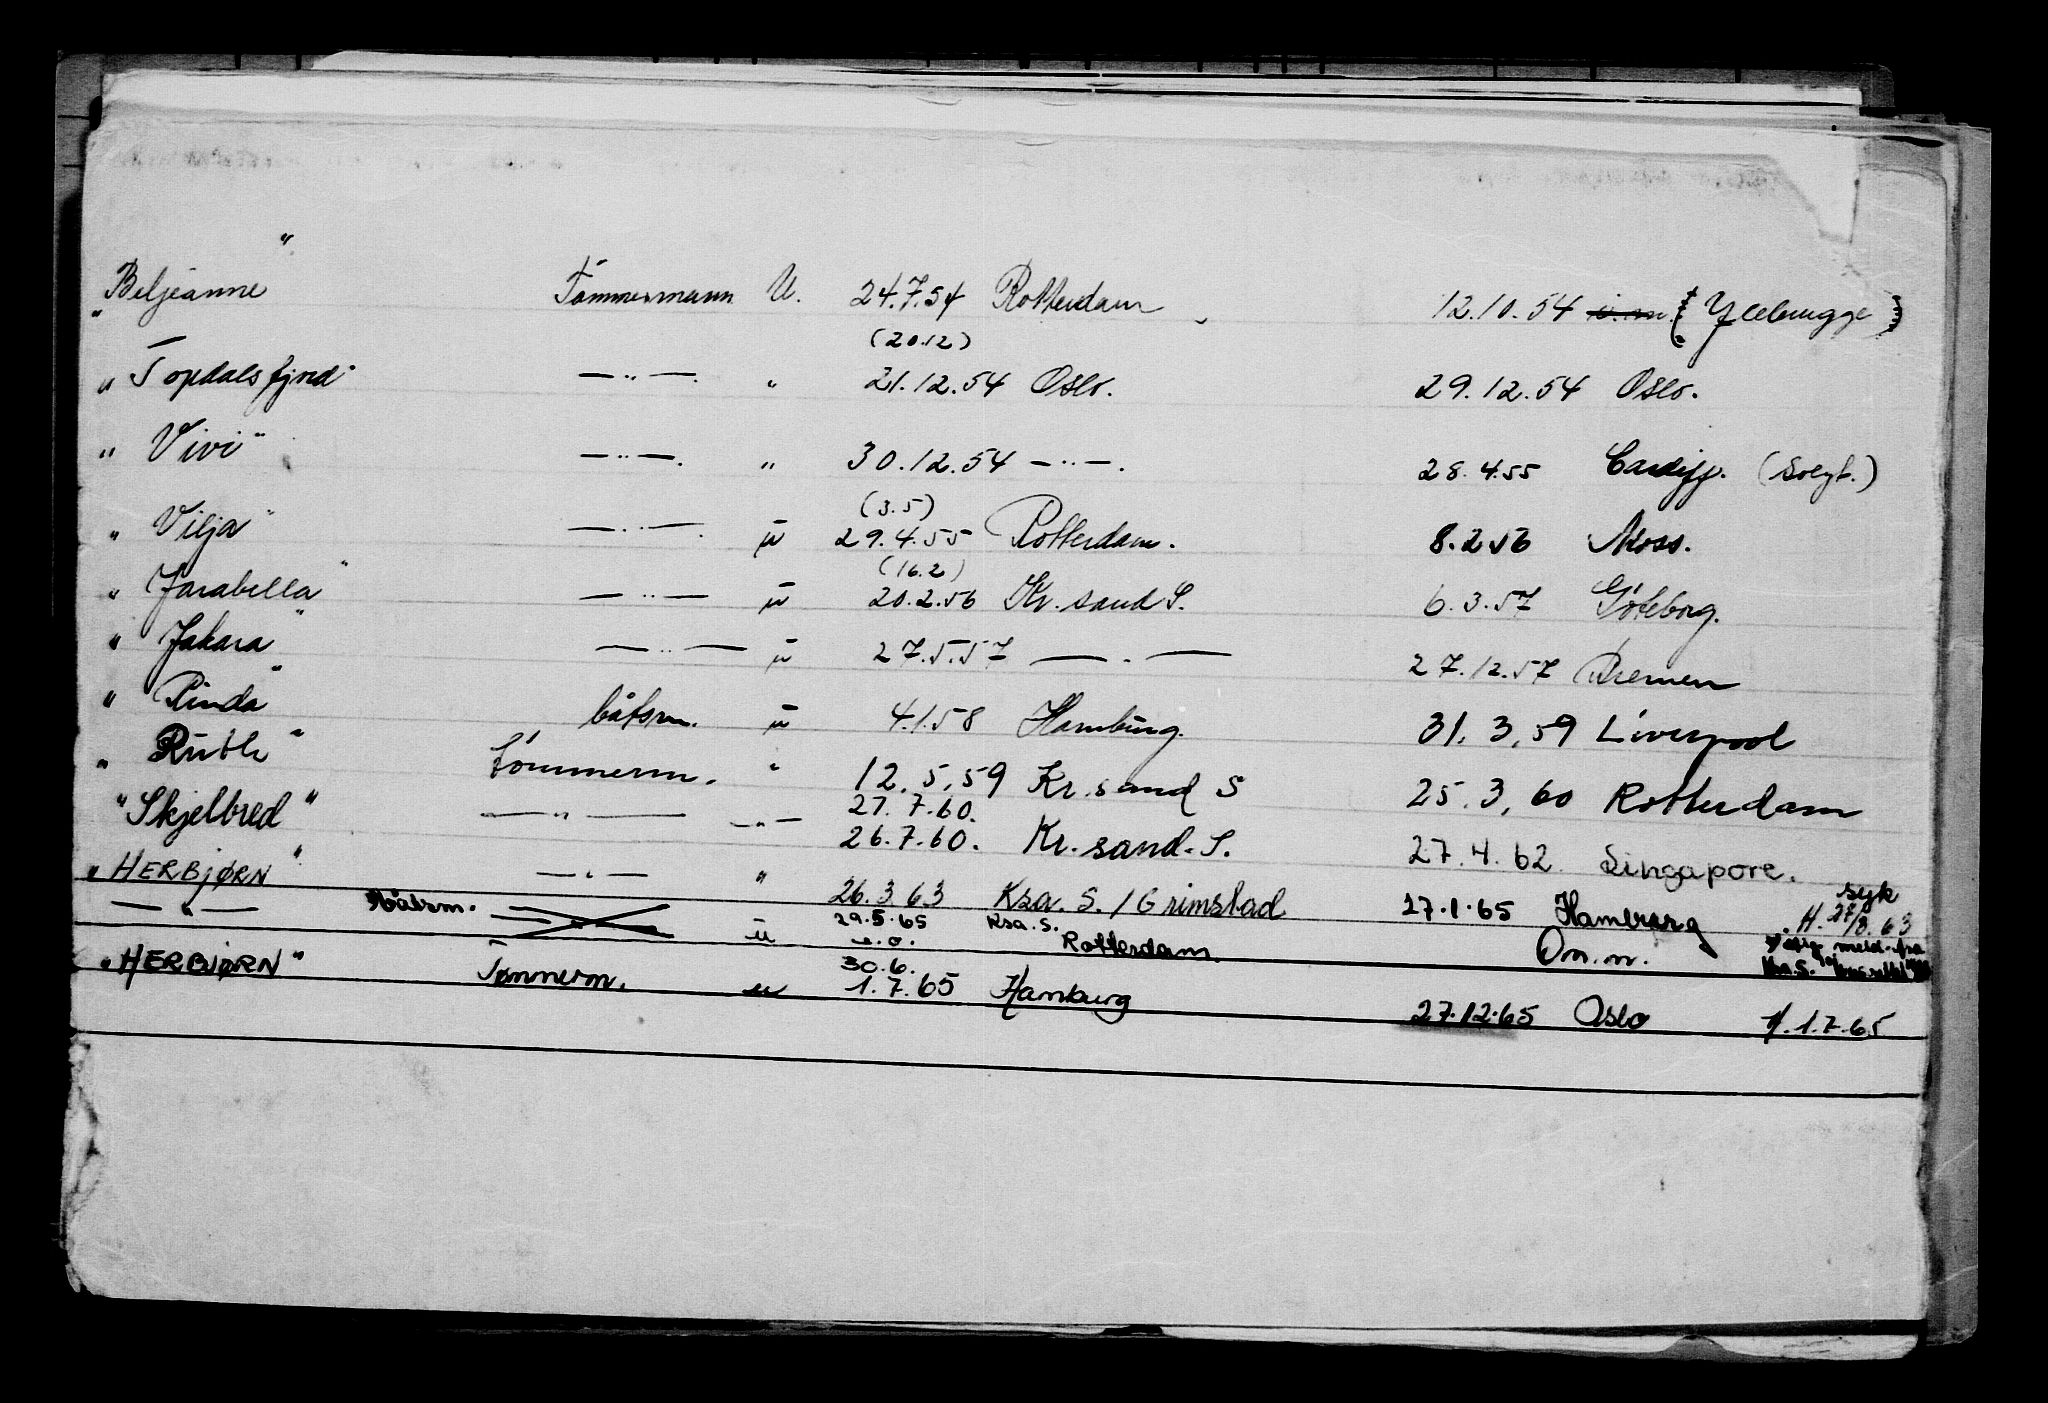 „Beljeanne" Tømmermann U. 24.7.54 Rotterdam 12.10.54 (Yllebrugge)
(20.12)
„Topdalsfjord" — „ — „ 21.12.54 Oslo. 29.12.54 Oslo.
„Vivi" — „ —. „ 30.12.54 — „ —. 28.4.55 Cardiff. (Solgt.)
(3.5)
„Vilja" — „ —. u 29.4.55 Rotterdam. 8.2.56 Moss.
(16.2)
„Jarabella" — „ — u 20.2.56 Kr. sand S. 6.3.57 Göteborg.
„Jakara" — „ — u 27.5.57 — „ — 27.12.57 Bremen
„Pinda" båtsm. u 4.1.58 Hamburg. 31.3.59 Liverpool
„Ruth" tømmerm. „ 12.5.59 Kr. sand S 25.3.60 Rotterdam
27.7.60.
"Skjelbred" — „ — — „ — 26.7.60. Kr. sand. S. 27.4.62. Singapore.
„HERBJØRN" — „ — „ 26.3.63 Ksa. S. / Grimstad 27.1.65 Hamburg syk
H. 27/8.63
— „ — Båtsm. u 29.5.65 Ksa. S. Rotterdam. On.m. meld. fra
Ksa. S.
30.6.
„HERBJØRN" Tømmerm. u 1.7.65 Hamburg 27.12.65 Oslo H. 1.7.65